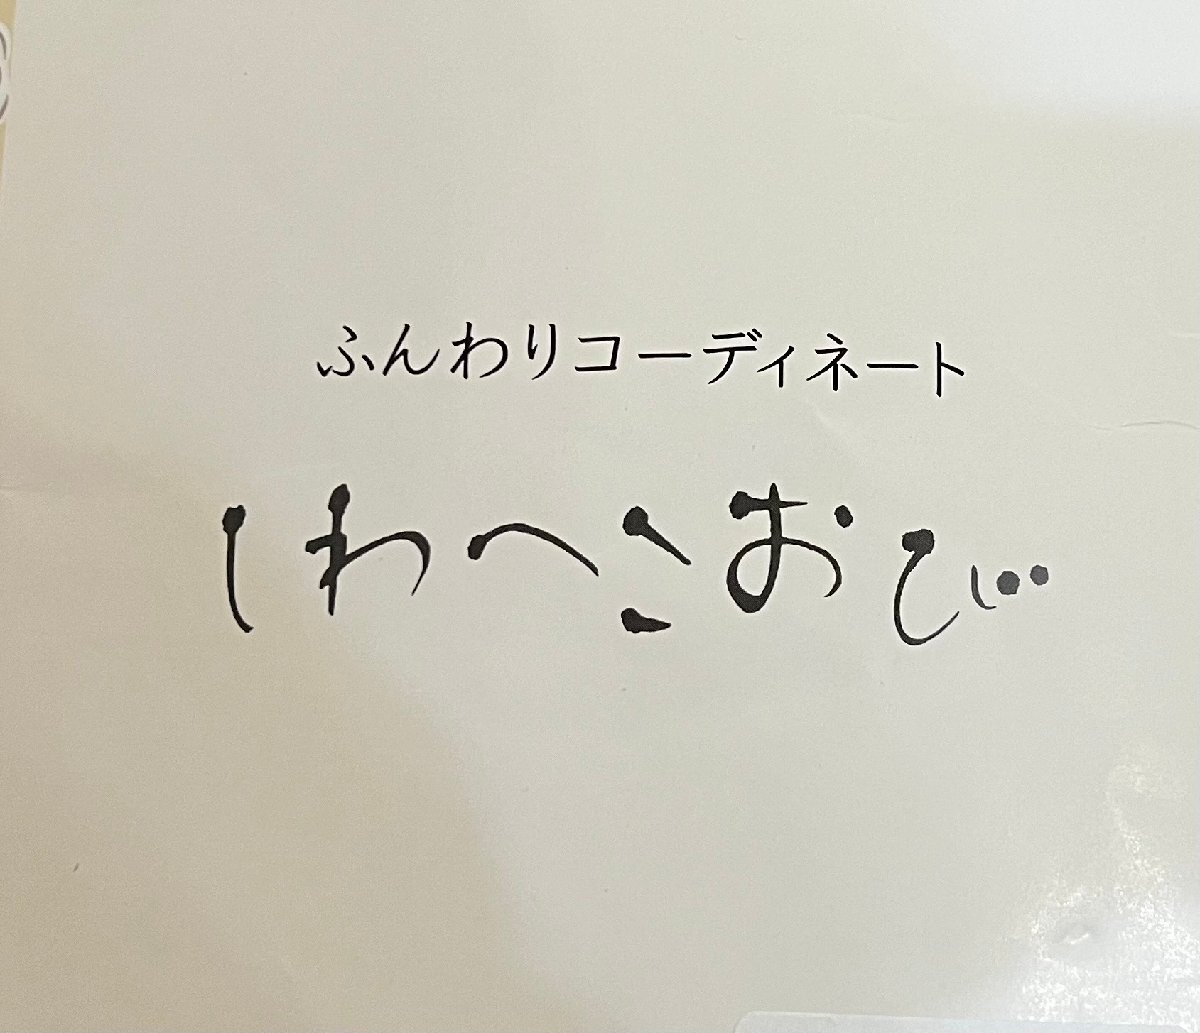 ふんわりコーディネート
しわへこおび